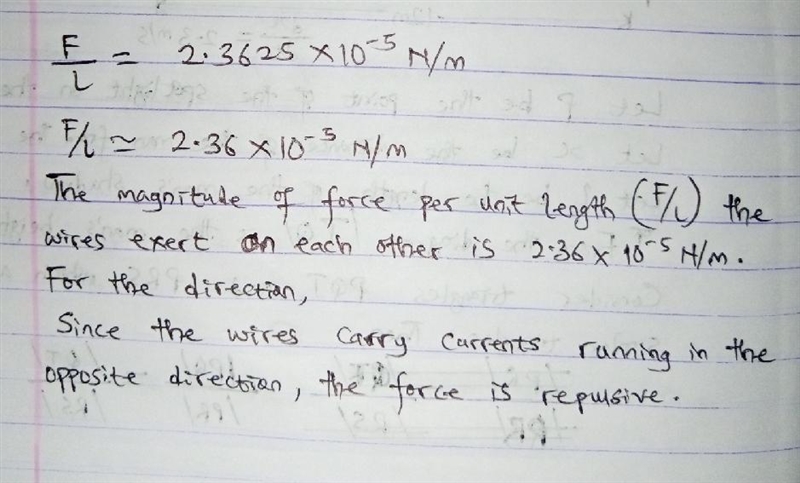 F/L = 2.3625 × 10⁻⁵ N/m
F/L ≃ 2.36 × 10⁻⁵ N/m
The magnitude of force per unit length (F/L) the
wires exert on each other is 2.36 × 10⁻⁵ N/m.
For the direction,
Since the wires carry currents running in the
opposite direction, the force is repulsive.